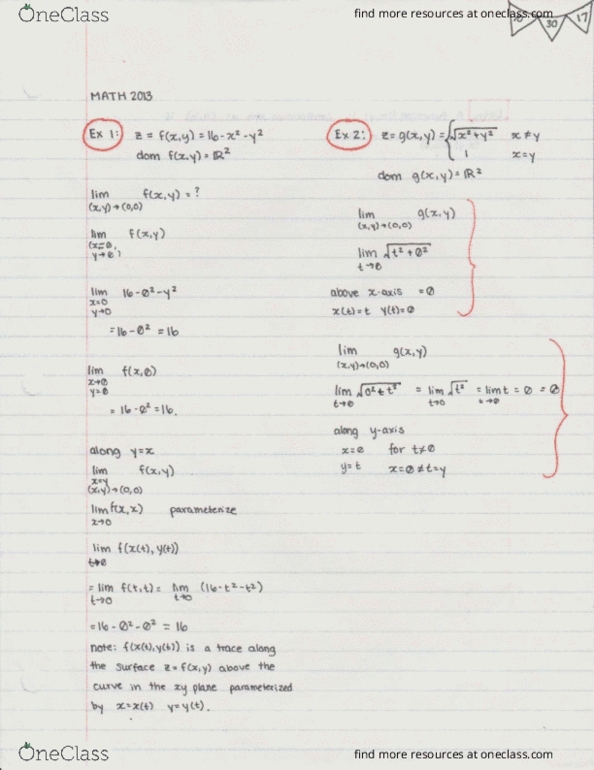 OneClass
find more resources at oneclass.com
30 17
MATH 2013
Ex 1: z = f(x,y) = 16-x²-y²
dom f(x,y) = ℝ²
lim f(x,y) = ?
(x,y)→(0,0)
lim f(x,y)
(x=0,
y→0)
lim 16-0²-y²
x=0
y→0
=16-0² = 16
lim f(x,0)
x→0
y=0
= 16-0² = 16.
along y=x
lim f(x,y)
x=y
(x,y)→(0,0)
lim f(x,x) parameterize
x→0
lim f(x(t), y(t))
t→0
= lim f(t,t) = lim (16-t²-t²)
t→0 t→0
=16-0²-0² = 16
note: f(x(t),y(t)) is a trace along
the surface z=f(x,y) above the
curve in the xy plane parameterized
by x=x(t) y=y(t).
Ex 2: z=g(x,y) = { √x²+y² x≠y
1 x=y
dom g(x,y) = ℝ²
lim g(x,y)
(x,y)→(0,0)
lim √t²+0²
t→0
above x-axis =0
x(t)=t y(t)=0
lim g(x,y)
(x,y)→(0,0)
lim √0²+t² = lim √t² = lim t = 0 = 0
t→0 t→0 →0
along y-axis
x=0 for t≠0
y=t x=0≠t=y
OneClass
find more resources at oneclass.com